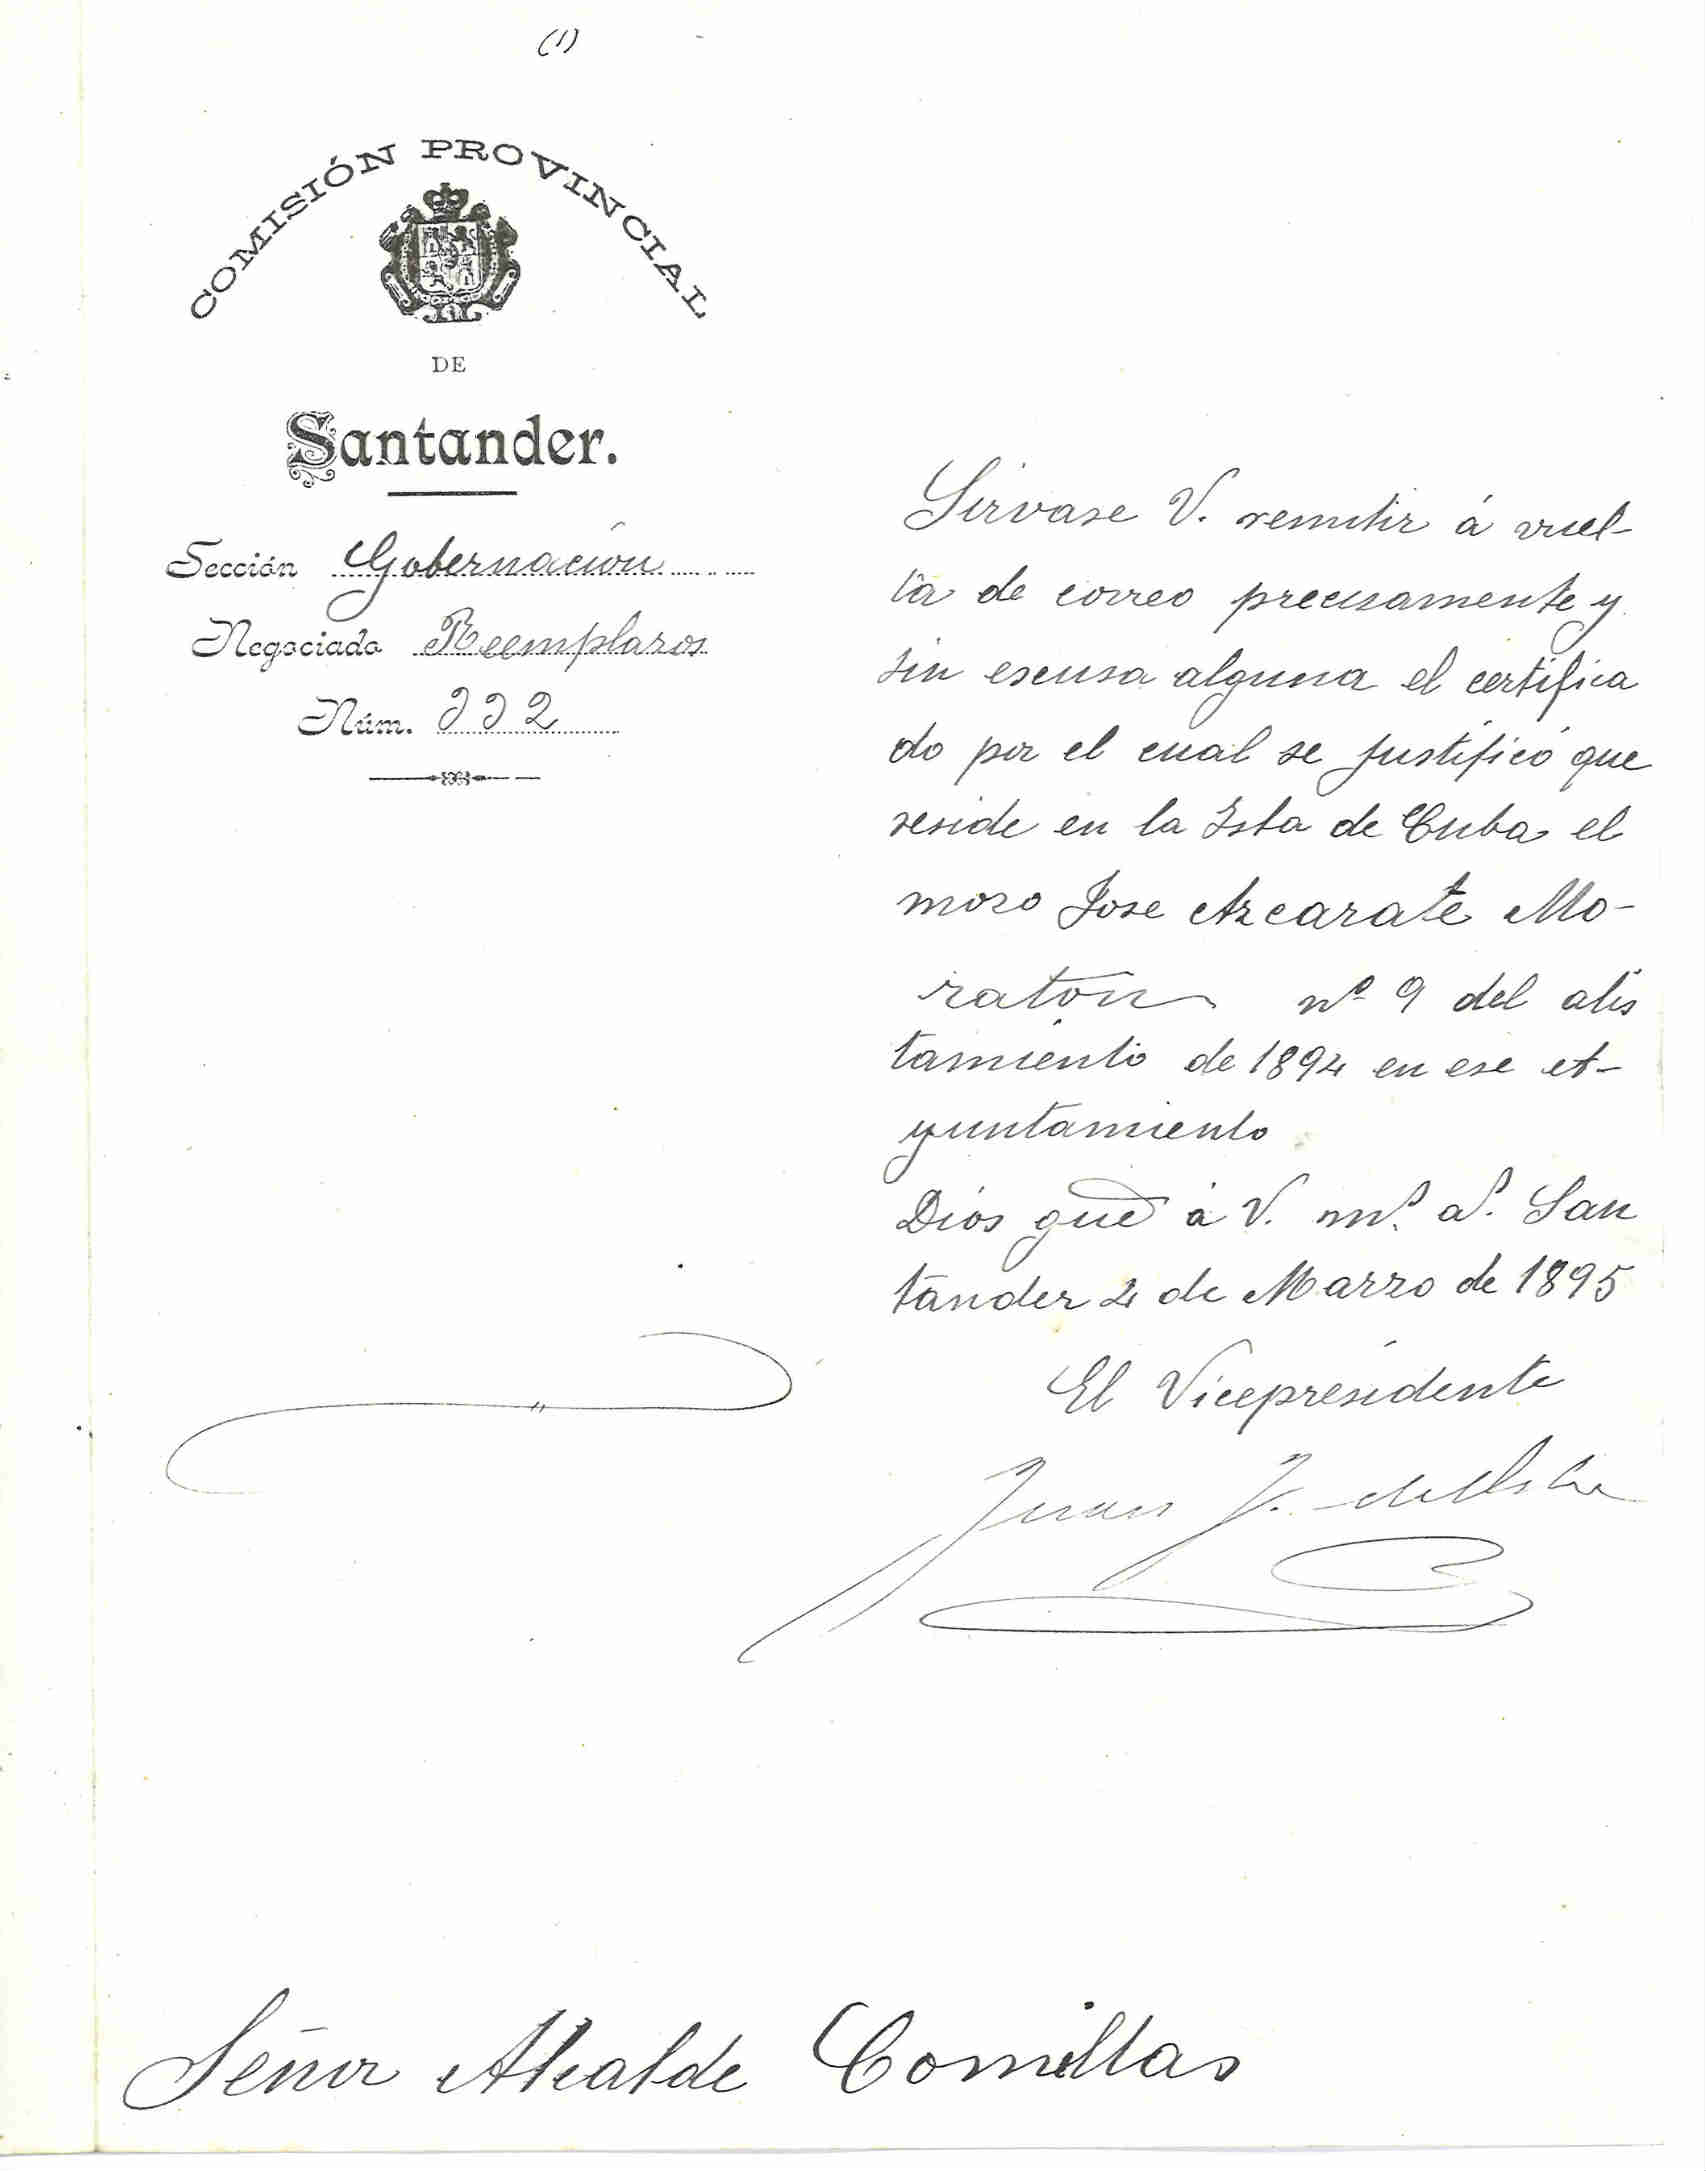 (1)
COMISIÓN PROVINCIAL
DE
Santander.
Sección Gobernación
Negociado Reemplazos
Núm. 332
Sirvase V. remitir á vuel-
ta de correo precisamente y
sin escusa alguna el certifica
do por el cual se justificó que
reside en la Isla de Cuba el
mozo Jose Azcarate Mo-
ratón nº 9 del alis
tamiento de 1894 en ese A-
yuntamiento
Dios gue á V. ms. as. San
tander 4 de Marzo de 1895
El Vicepresidente
Juan J.
Señor Alcalde Comillas